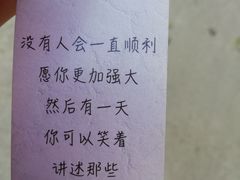 没有人会一直顺利
愿你更加强大
然后有一天
你可以笑着
讲述那些